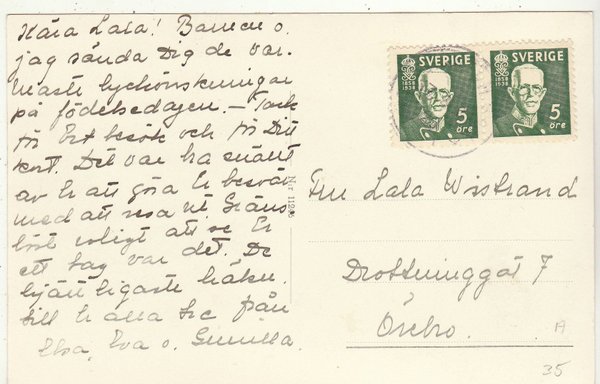 Kära Lala! Barnen o.
jag sända Dig de var-
maste lyckönskningar
på födelsedagen. — Tack
för Ert besök och för Ditt
kort. Det var bra snällt
av Er att göra Er besvär
med att resa ut. Gräns-
löst roligt att se Er
ett tag var det. De
hjärtligaste häls.
till Er alla tre från
Elsa, Eva o. Gunilla.
SVERIGE
1858
1938
5
öre
SVERIGE
1858
1938
5
öre
Fru Lala Wistrand
Drottninggat 7
Örebro.
A
35